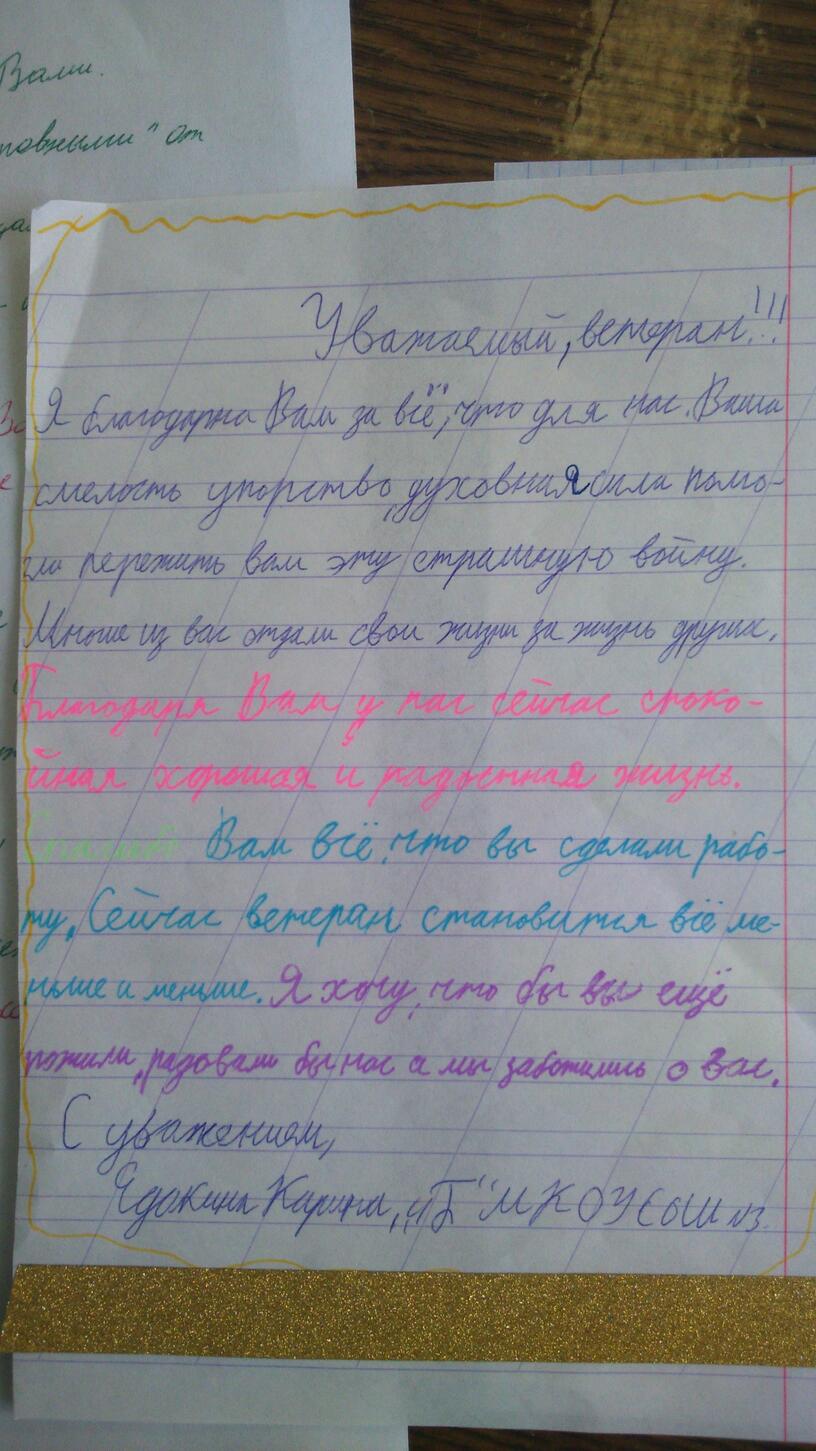 Вами.
товными" от
Уважаемый, ветеран!!!
Я благодарна Вам за всё, что для нас. Ваша
смелость упорство, духовная сила помо-
гли пережить вам эту страшную войну.
Мноше из вас отдали свои жизни за жизнь других.
Благодаря Вам у нас сейчас споко-
йная хорошая и радостная жизнь.
Спасибо Вам всё, что вы сделали рабо-
ту. Сейчас ветеран становится всё ме-
ньше и меньше. Я хочу, что бы вы ещё
пожили, радовали бы нас а мы заботились о Вас.
С уважением,
Едокина Карина, МКОУ СОШ №3.